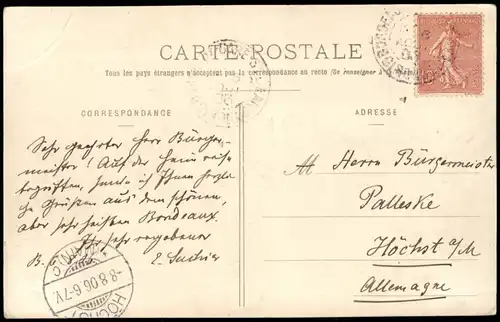 CARTE POSTALE
Tous les pays étrangers n'acceptent pas la correspondance au recto (Se renseigner à
CORRESPONDANCE
ADRESSE
Sehr geehrter Herr Bürger-
meister! Auf der Heimreise
begriffen, sende ich Ihnen herzli-
che Grüßen aus dem schönen,
aber sehr heißen Bordeaux.
Ihr sehr ergebener
B.
M Herrn Bürgermeister
Palleske
Höchst a/M
Allemagne
-8.8.06.6-7V.
HÖCHST